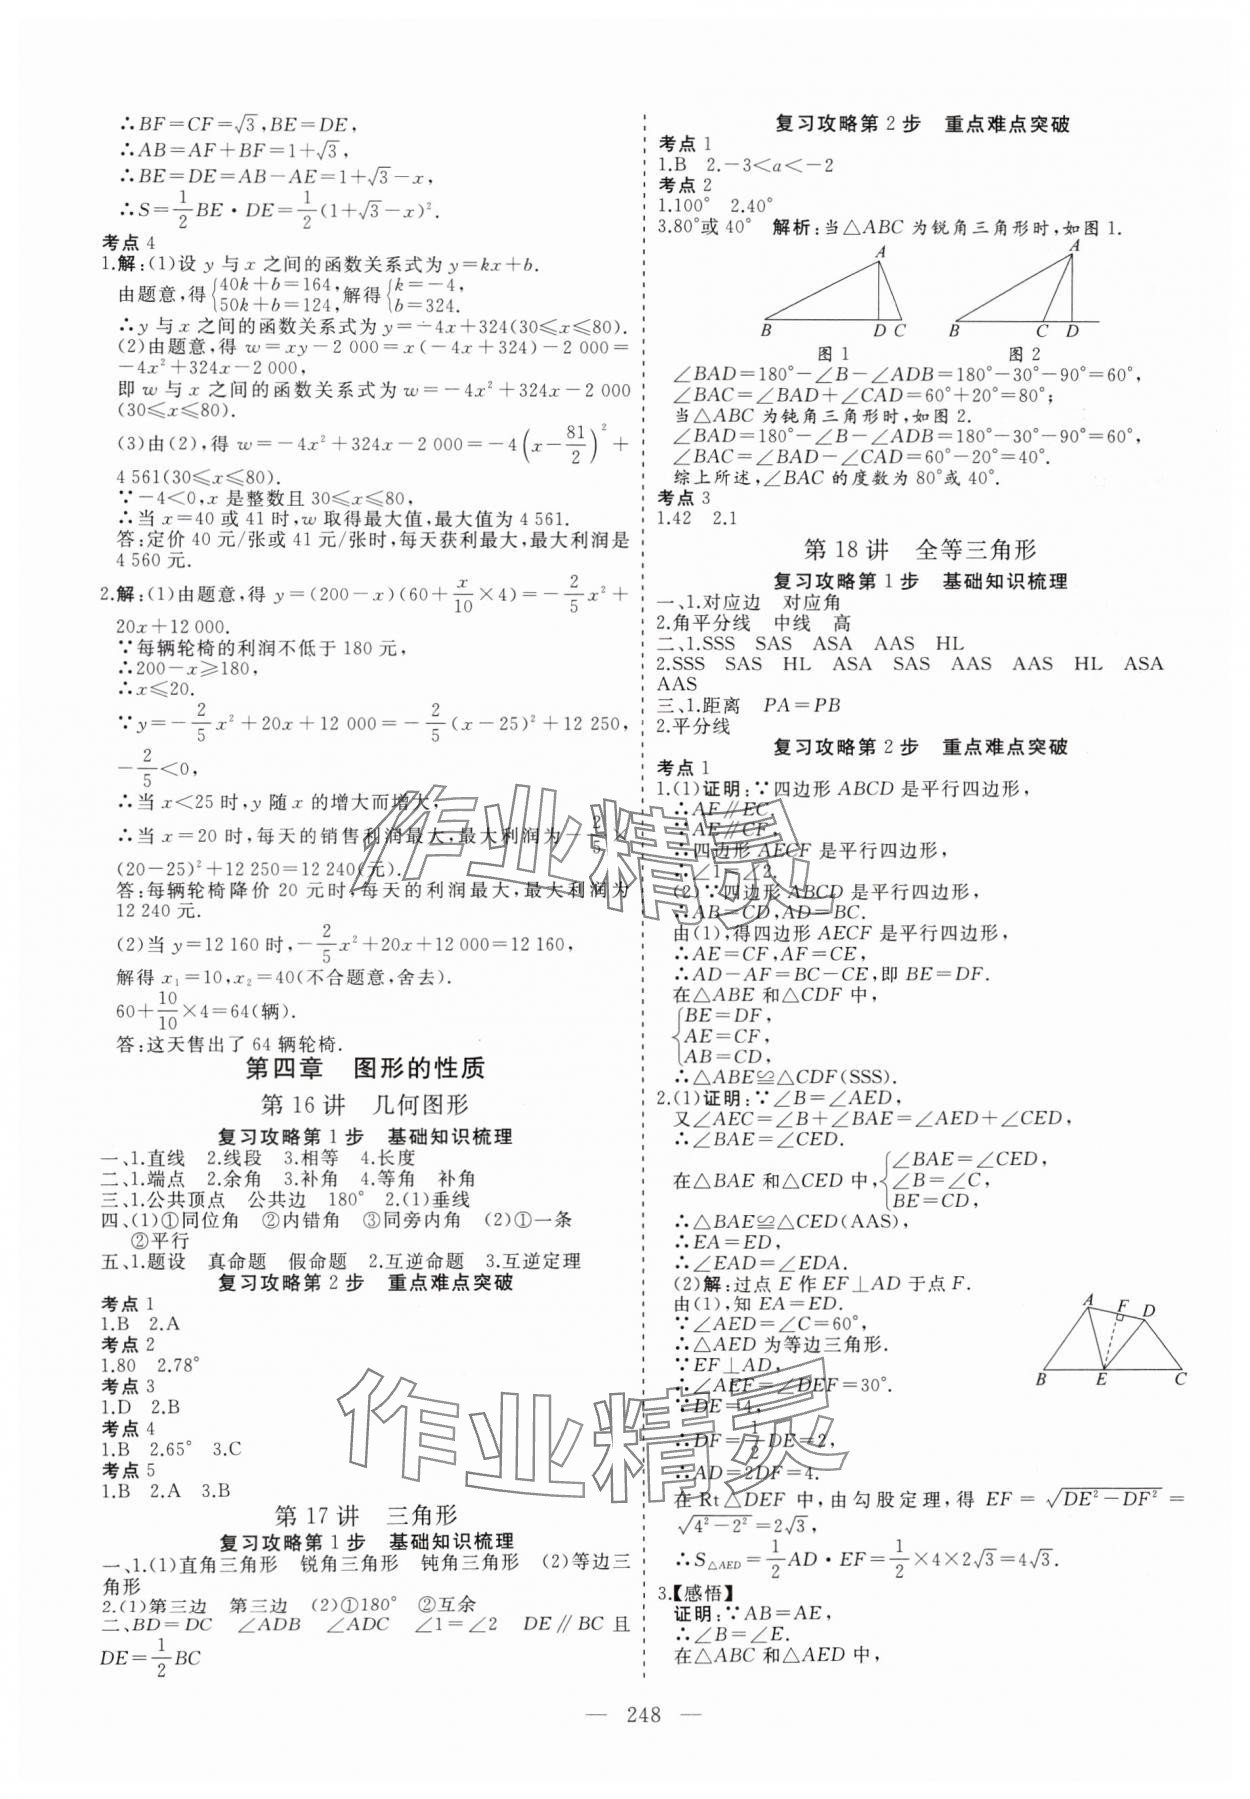 ∴BF=CF=√3,BE=DE,
∴AB=AF+BF=1+√3,
∴BE=DE=AB-AE=1+√3-x,
∴S=1/2 BE·DE=1/2(1+√3-x)².
考点 4
1.解:(1)设 y 与 x 之间的函数关系式为 y=kx+b.
由题意,得{40k+b=164, 50k+b=124, 解得{k=-4, b=324.
∴y 与 x 之间的函数关系式为 y=-4x+324(30≤x≤80).
(2)由题意,得 w=xy-2 000=x(-4x+324)-2 000=
-4x²+324x-2 000,
即 w 与 x 之间的函数关系式为 w=-4x²+324x-2 000
(30≤x≤80).
(3)由(2),得 w=-4x²+324x-2 000=-4(x-81/2)²+
4 561(30≤x≤80).
∵-4<0,x 是整数且 30≤x≤80,
∴当 x=40 或 41 时,w 取得最大值,最大值为 4 561.
答:定价 40 元/张或 41 元/张时,每天获利最大,最大利润是
4 560 元.
2.解:(1)由题意,得 y=(200-x)(60+x/10×4)=-2/5x²+
20x+12 000.
∵每辆轮椅的利润不低于 180 元,
∴200-x≥180,
∴x≤20.
∵y=-2/5x²+20x+12 000=-2/5(x-25)²+12 250,
-2/5<0,
∴当 x<25 时,y 随 x 的增大而增大,
∴当 x=20 时,每天的销售利润最大,最大利润为-2/5×
(20-25)²+12 250=12 240(元).
答:每辆轮椅降价 20 元时,每天的利润最大,最大利润为
12 240 元.
(2)当 y=12 160 时,-2/5x²+20x+12 000=12 160,
解得 x₁=10,x₂=40(不合题意,舍去).
60+10/10×4=64(辆).
答:这天售出了 64 辆轮椅.
第四章 图形的性质
第 16 讲 几何图形
复习攻略第 1 步 基础知识梳理
一、1.直线 2.线段 3.相等 4.长度
二、1.端点 2.余角 3.补角 4.等角 补角
三、1.公共顶点 公共边 180° 2.(1)垂线
四、(1)①同位角 ②内错角 ③同旁内角 (2)①一条
②平行
五、1.题设 真命题 假命题 2.互逆命题 3.互逆定理
复习攻略第 2 步 重点难点突破
考点 1
1.B 2.A
考点 2
1.80 2.78°
考点 3
1.D 2.B
考点 4
1.B 2.65° 3.C
考点 5
1.B 2.A 3.B
第 17 讲 三角形
复习攻略第 1 步 基础知识梳理
一、1.(1)直角三角形 锐角三角形 钝角三角形 (2)等边三
角形
2.(1)第三边 第三边 (2)①180° ②互余
二、BD=DC ∠ADB ∠ADC ∠1=∠2 DE∥BC 且
DE=1/2BC
复习攻略第 2 步 重点难点突破
考点 1
1.B 2.-3<a<-2
考点 2
1.100° 2.40°
3.80°或 40° 解析:当△ABC 为锐角三角形时,如图 1.
A
B
D
C
图 1
A
B
C
D
图 2
∠BAD=180°-∠B-∠ADB=180°-30°-90°=60°,
∠BAC=∠BAD+∠CAD=60°+20°=80°;
当△ABC 为钝角三角形时,如图 2.
∠BAD=180°-∠B-∠ADB=180°-30°-90°=60°,
∠BAC=∠BAD-∠CAD=60°-20°=40°.
综上所述,∠BAC 的度数为 80°或 40°.
考点 3
1.42 2.1
第 18 讲 全等三角形
复习攻略第 1 步 基础知识梳理
一、1.对应边 对应角
2.角平分线 中线 高
二、1.SSS SAS ASA AAS HL
2.SSS SAS HL ASA SAS AAS AAS HL ASA
AAS
三、1.距离 PA=PB
2.平分线
复习攻略第 2 步 重点难点突破
考点 1
1.(1)证明:∵四边形 ABCD 是平行四边形,
∴AF∥EC.
∵AE∥CF,
∴四边形 AECF 是平行四边形,
∴∠1=∠2.
(2)∵四边形 ABCD 是平行四边形,
∴AB=CD,AD=BC.
由(1),得四边形 AECF 是平行四边形,
∴AE=CF,AF=CE,
∴AD-AF=BC-CE,即 BE=DF.
在△ABE 和△CDF 中,
{BE=DF,
AE=CF,
AB=CD,
∴△ABE≌△CDF(SSS).
2.(1)证明:∵∠B=∠AED,
又∠AEC=∠B+∠BAE=∠AED+∠CED,
∴∠BAE=∠CED.
在△BAE 和△CED 中,{∠BAE=∠CED, ∠B=∠C, BE=CD,
∴△BAE≌△CED(AAS),
∴EA=ED,
∴∠EAD=∠EDA.
(2)解:过点 E 作 EF⊥AD 于点 F.
由(1),知 EA=ED.
∵∠AED=∠C=60°,
∴△AED 为等边三角形.
∵EF⊥AD,
∴∠AEF=∠DEF=30°.
∵DE=4,
∴DF=1/2DE=2,
∴AD=2DF=4.
A
F
D
B
E
C
在 Rt△DEF 中,由勾股定理,得 EF=√(DE²-DF²)=
√(4²-2²)=2√3,
∴S△AED=1/2AD·EF=1/2×4×2√3=4√3.
3.【感悟】
证明:∵AB=AE,
∴∠B=∠E.
在△ABC 和△AED 中,
— 248 —
作业精灵
作业精灵